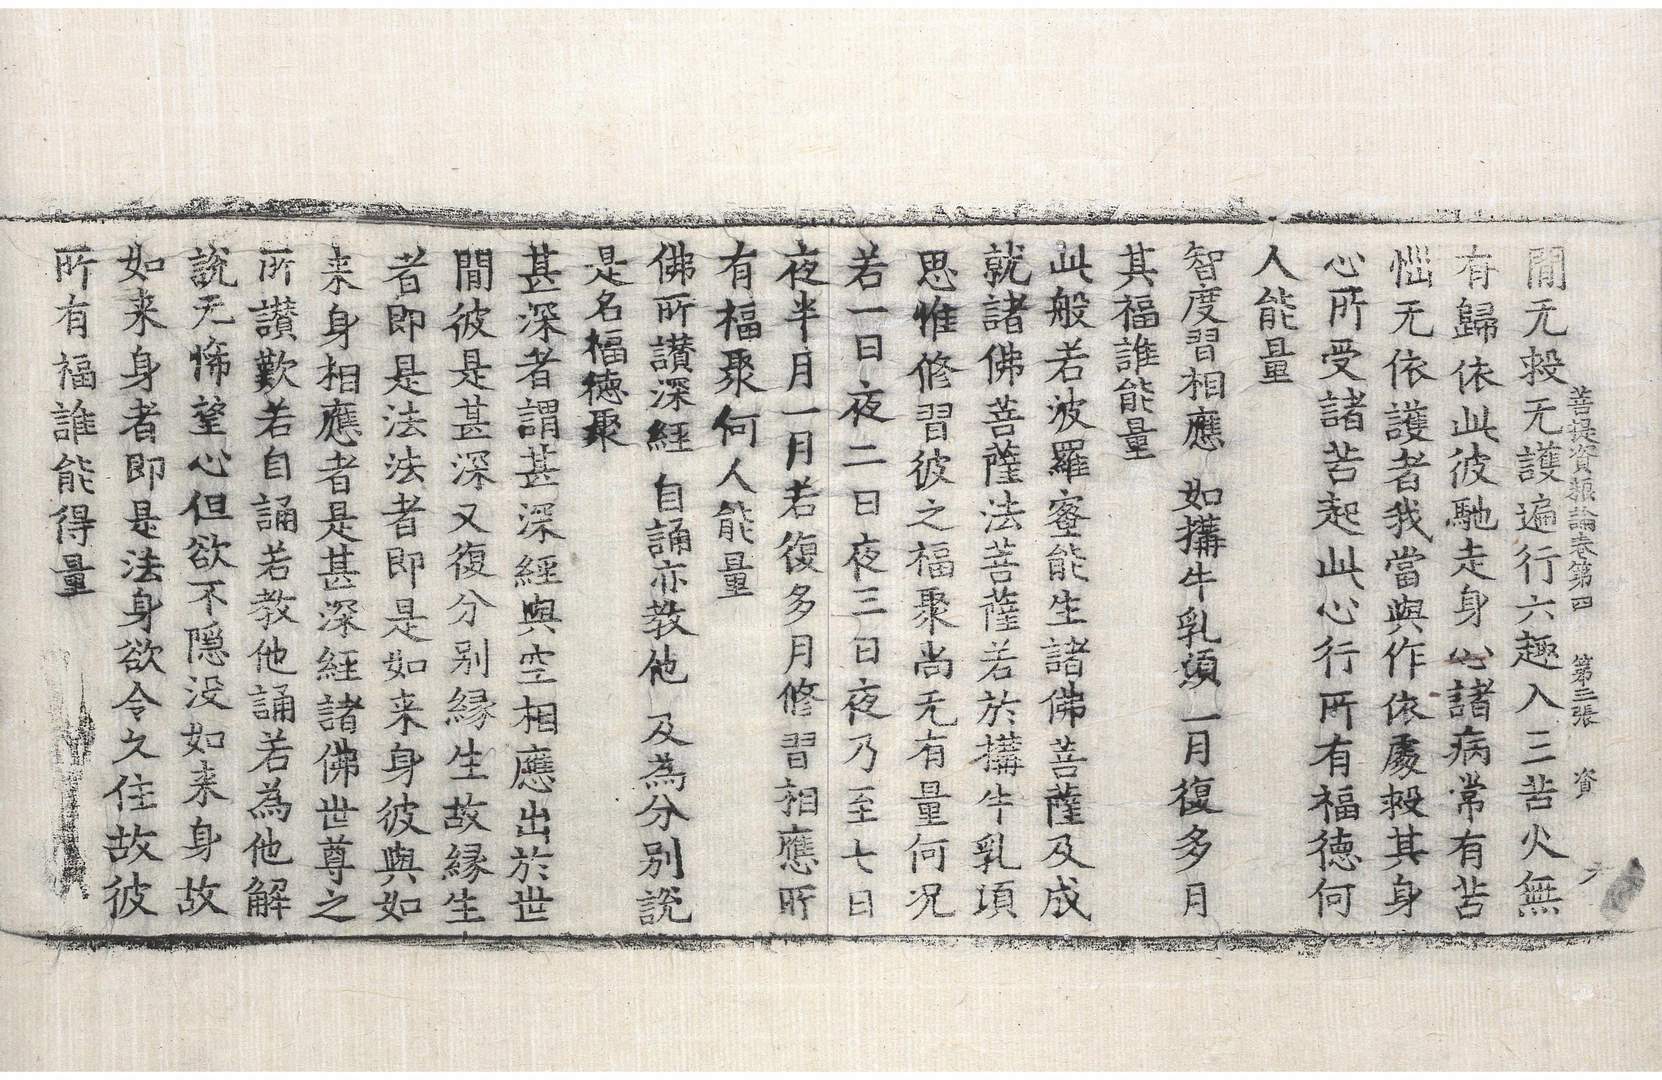 菩提資粮論卷第四 第三張 資
間无救无護遍行六趣入三苦火無
有歸依此彼馳走身心諸病常有苦
惱无依護者我當與作依處救其身
心所受諸苦起此心行所有福德何
人能量
智度習相應 如搆牛乳頃 一月復多月
其福誰能量
此般若波羅蜜能生諸佛菩薩及成
就諸佛菩薩法菩薩若於搆牛乳頃
思惟修習彼之福聚尚无有量何况
若一日夜二日夜三日夜乃至七日
夜半月一月若復多月修習相應所
有福聚何人能量
佛所讃深經 自誦亦教他 及為分别說
是名福德聚
甚深者謂甚深經與空相應出於世
間彼是甚深又復分别縁生故縁生
者即是法法者即是如来身彼與如
来身相應者是甚深經諸佛世尊之
所讃歎若自誦若教他誦若為他解
說无悕望心但欲不隠没如来身故
如来身者即是法身欲令久住故彼
所有福誰能得量